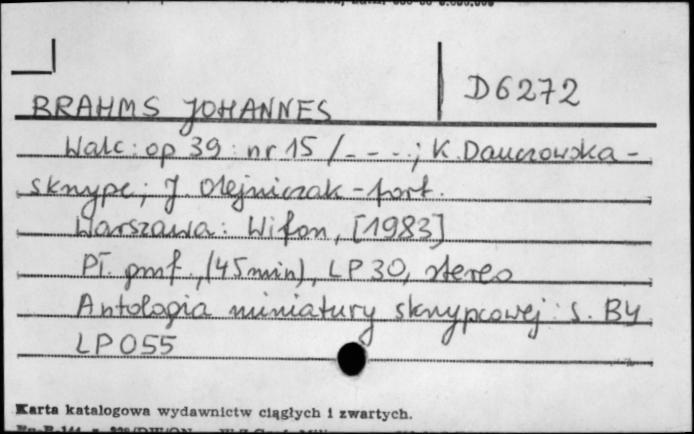 D6272
BRAHMS JOHANNES
Walc: op 39: nr 15 /- - -.; K. Danczowska -
skrzypce; J. Olejniczak - fort.
Warszawa: Wifon, [1983]
Pł. gmf., (45 min), LP 30, stereo
Antologia miniatury skrzypcowej: s. BY
LP 055
Karta katalogowa wydawnictw ciągłych i zwartych.